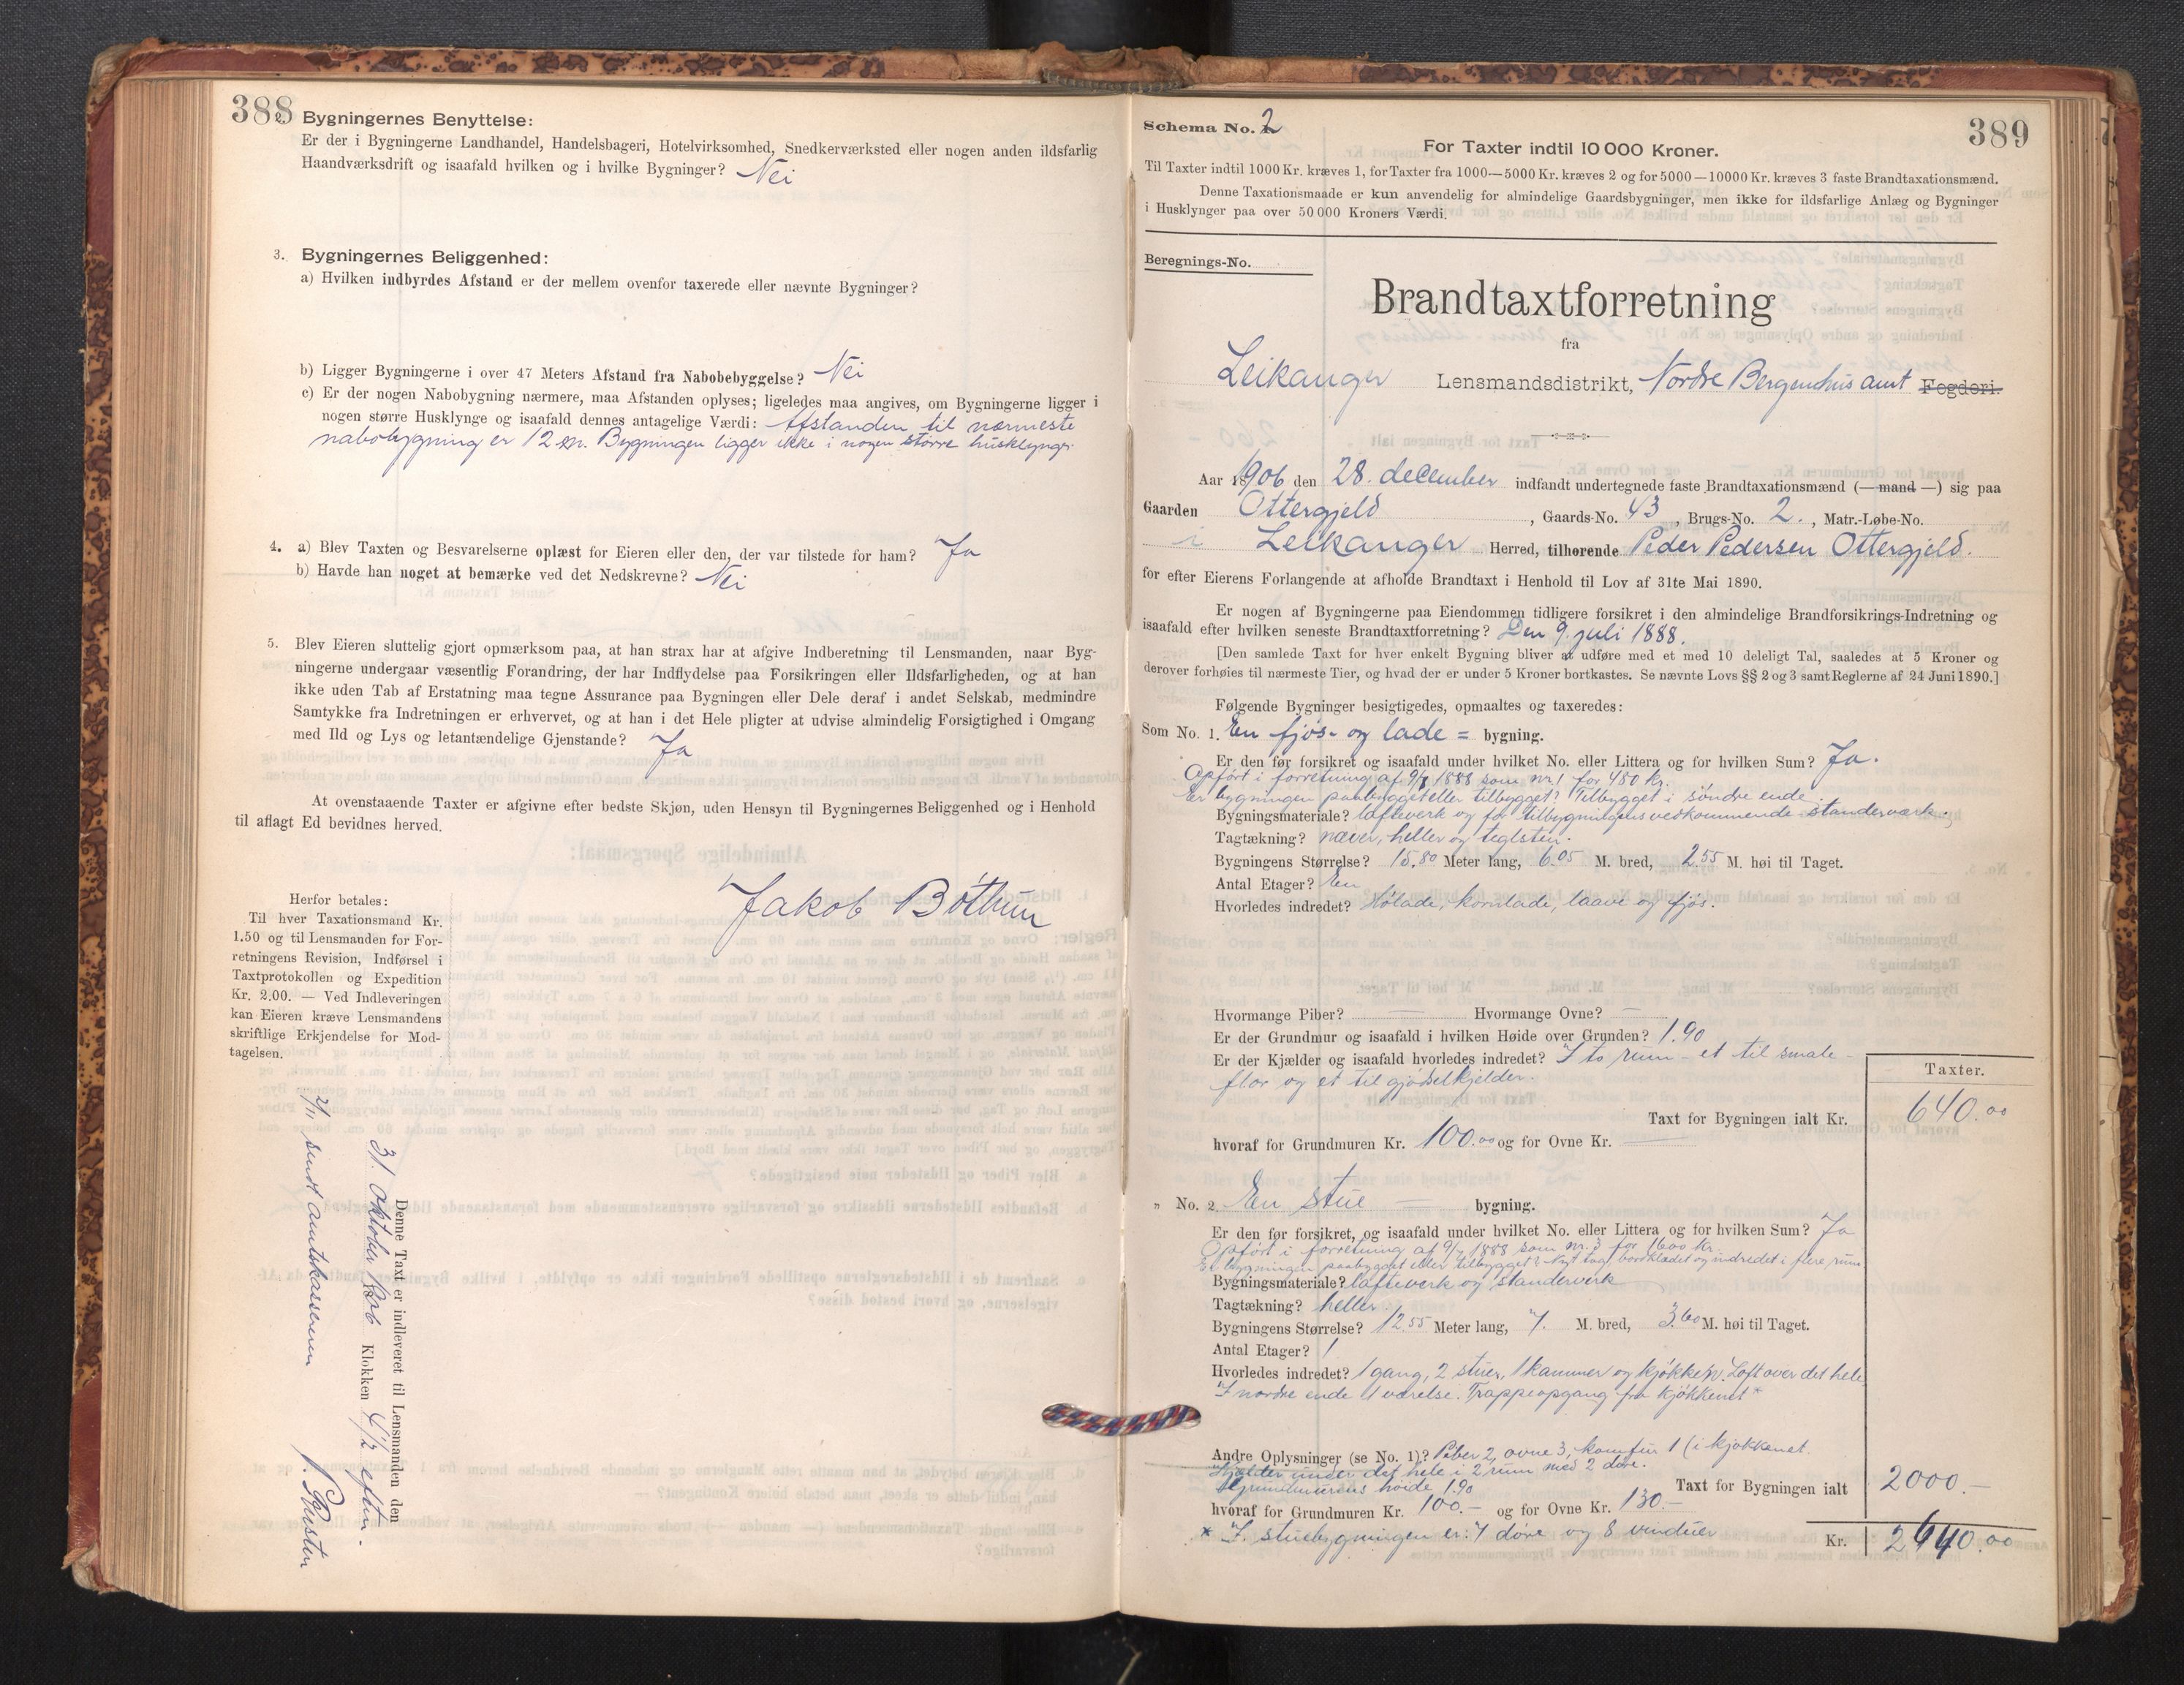 388
2. Bygningernes Benyttelse:
Er der i Bygningerne Landhandel, Handelsbageri, Hotelvirksomhed, Snedkerværksted eller nogen anden ildsfarlig
Haandværksdrift og isaafald hvilken og i hvilke Bygninger? Nei
3. Bygningernes Beliggenhed:
a) Hvilken indbyrdes Afstand er der mellem ovenfor taxerede eller nævnte Bygninger?
b) Ligger Bygningerne i over 47 Meters Afstand fra Nabobebyggelse? Nei
c) Er der nogen Nabobygning nærmere, maa Afstanden oplyses; ligeledes maa angives, om Bygningerne ligger i
nogen større Husklynge og isaafald dennes antagelige Værdi: Afstanden til nærmeste
nabobygning er 12 m. Bygningen ligger ikke i nogen større husklynge.
4. a) Blev Taxten og Besvarelserne oplæst for Eieren eller den, der var tilstede for ham? Ja
b) Havde han noget at bemærke ved det Nedskrevne? Nei
5. Blev Eieren sluttelig gjort opmærksom paa, at han strax har at afgive Indberetning til Lensmanden, naar Byg-
ningerne undergaar væsentlig Forandring, der har Indflydelse paa Forsikringen eller Ildsfarligheden, og at han
ikke uden Tab af Erstatning maa tegne Assurance paa Bygningen eller Dele deraf i andet Selskab, medmindre
Samtykke fra Indretningen er erhvervet, og at han i det Hele pligter at udvise almindelig Forsigtighed i Omgang
med Ild og Lys og letantændelige Gjenstande? Ja
At ovenstaaende Taxter er afgivne efter bedste Skjøn, uden Hensyn til Bygningernes Beliggenhed og i Henhold
til aflagt Ed bevidnes herved.
Jakob Bøthun
Herfor betales:
Til hver Taxationsmand Kr.
1.50 og til Lensmanden for For-
retningens Revision, Indførsel i
Taxtprotokollen og Expedition
Kr. 2.00. — Ved Indleveringen
kan Eieren kræve Lensmandens
skriftlige Erkjendelse for Mod-
tagelsen.
Denne Taxt er indleveret til Lensmanden den
31. oktober Klokken 4 1/2 eftm.
2/11 sendt amtskassereren
389
Schema No. 2
For Taxter indtil 10 000 Kroner.
Til Taxter indtil 1000 Kr. kræves 1, for Taxter fra 1000—5000 Kr. kræves 2 og for 5000—10000 Kr. kræves 3 faste Brandtaxationsmænd.
Denne Taxationsmaade er kun anvendelig for almindelige Gaardsbygninger, men ikke for ildsfarlige Anlæg og Bygninger
i Husklynger paa over 50 000 Kroners Værdi.
Beregnings-No.
Brandtaxtforretning
fra
Leikanger Lensmandsdistrikt, Nordre Bergenhus amt Fogderi.
Aar 1906 den 28. december indfandt undertegnede faste Brandtaxationsmænd (—mand—) sig paa
Gaarden Ottergjeld, Gaards-No. 43, Brugs-No. 2., Matr.-Løbe-No.
i Leikanger Herred, tilhørende Peder Pedersen Ottergjeld.
for efter Eierens Forlangende at afholde Brandtaxt i Henhold til Lov af 31te Mai 1890.
Er nogen af Bygningerne paa Eiendommen tidligere forsikret i den almindelige Brandforsikrings-Indretning og
isaafald efter hvilken seneste Brandtaxtforretning? Den 9. juli 1888.
[Den samlede Taxt for hver enkelt Bygning bliver at udføre med et med 10 deleligt Tal, saaledes at 5 Kroner og
derover forhøies til nærmeste Tier, og hvad der er under 5 Kroner bortkastes. Se nævnte Lovs §§ 2 og 3 samt Reglerne af 24 Juni 1890.]
Følgende Bygninger besigtigedes, opmaaltes og taxeredes:
Som No. 1. En fjøs- og lade = bygning.
Er den før forsikret og isaafald under hvilket No. eller Littera og for hvilken Sum? Ja.
Opført i forretning af 9/7 1888 som nr. 1 for 480 kr.
Er bygningen paabygget eller tilbygget? Tilbygget i søndre ende.
Bygningsmateriale? lafteverk og for tilbygningens vedkommende standerværk.
Tagtækning? næver, heller og teglsten.
Bygningens Størrelse? 15.80 Meter lang, 6.05 M. bred, 2.55 M. høi til Taget.
Antal Etager? En
Hvorledes indredet? Hølade, kornlade, laave og fjøs.
Hvormange Piber? — Hvormange Ovne? —
Er der Grundmur og isaafald i hvilken Høide over Grunden? 1.90
Er der Kjælder og isaafald hvorledes indredet? I to rum – et til smale-
flor og et til gjødselkjelder.
Taxter.
Taxt for Bygningen ialt Kr. 640.00
hvoraf for Grundmuren Kr. 100.00 og for Ovne Kr. —
" No. 2. En stue — bygning.
Er den før forsikret, og isaafald under hvilket No. eller Littera og for hvilken Sum? Ja
Opført i forretning af 9/7 1888 som nr. 3 for 1600 kr.
Er bygningen paabygget eller tilbygget? Nyt tag, bordklædet og indredet i flere rum
Bygningsmateriale? lafteverk og standerverk
Tagtækning? heller
Bygningens Størrelse? 12.55 Meter lang, 7. M. bred, 3.60 M. høi til Taget.
Antal Etager? 1
Hvorledes indredet? 1 gang, 2 stuer, 1 kammer og kjøkken. Loft over det hele
I nordre ende 1 værelse. Trappeopgang fra kjøkkenet *
Andre Oplysninger (se No. 1)? Piber 2, ovne 3, komfur 1 (i kjøkkenet.
Kjelder under det hele i 2 rum med 2 døre.
Grundmurens høide 1.90
Taxt for Bygningen ialt 2000.—
hvoraf for Grundmuren Kr. 100.— og for Ovne Kr. 130.—
* I stuebygningen er: 7 døre og 8 vinduer
Kr. 2640.00